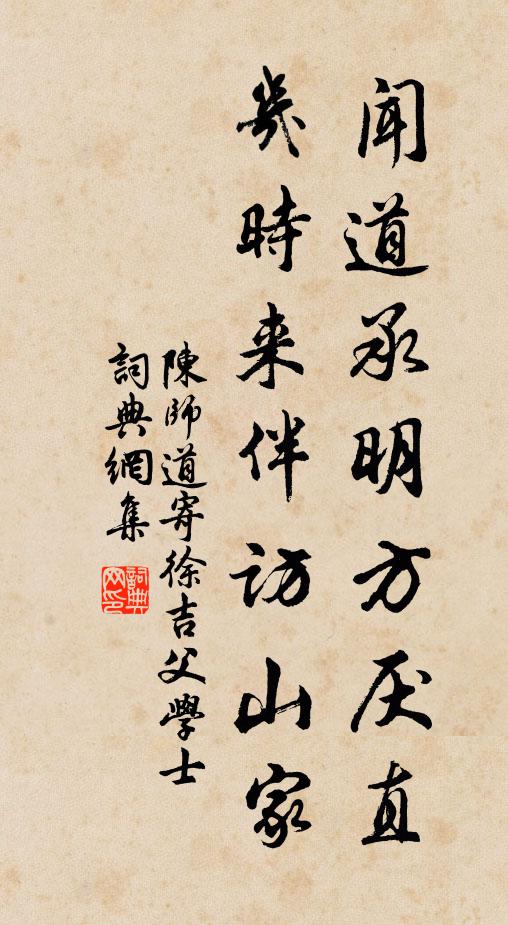 闻道承明方厌直
几時来伴访山家
陳師道寄徐吉父學士
詞典網集
詞典网印